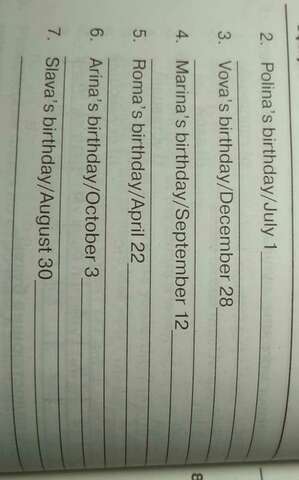 2. Polina's birthday/July 1
3. Vova's birthday/December 28
4. Marina's birthday/September 12
5. Roma's birthday/April 22
6. Arina's birthday/October 3
7. Slava's birthday/August 30
8